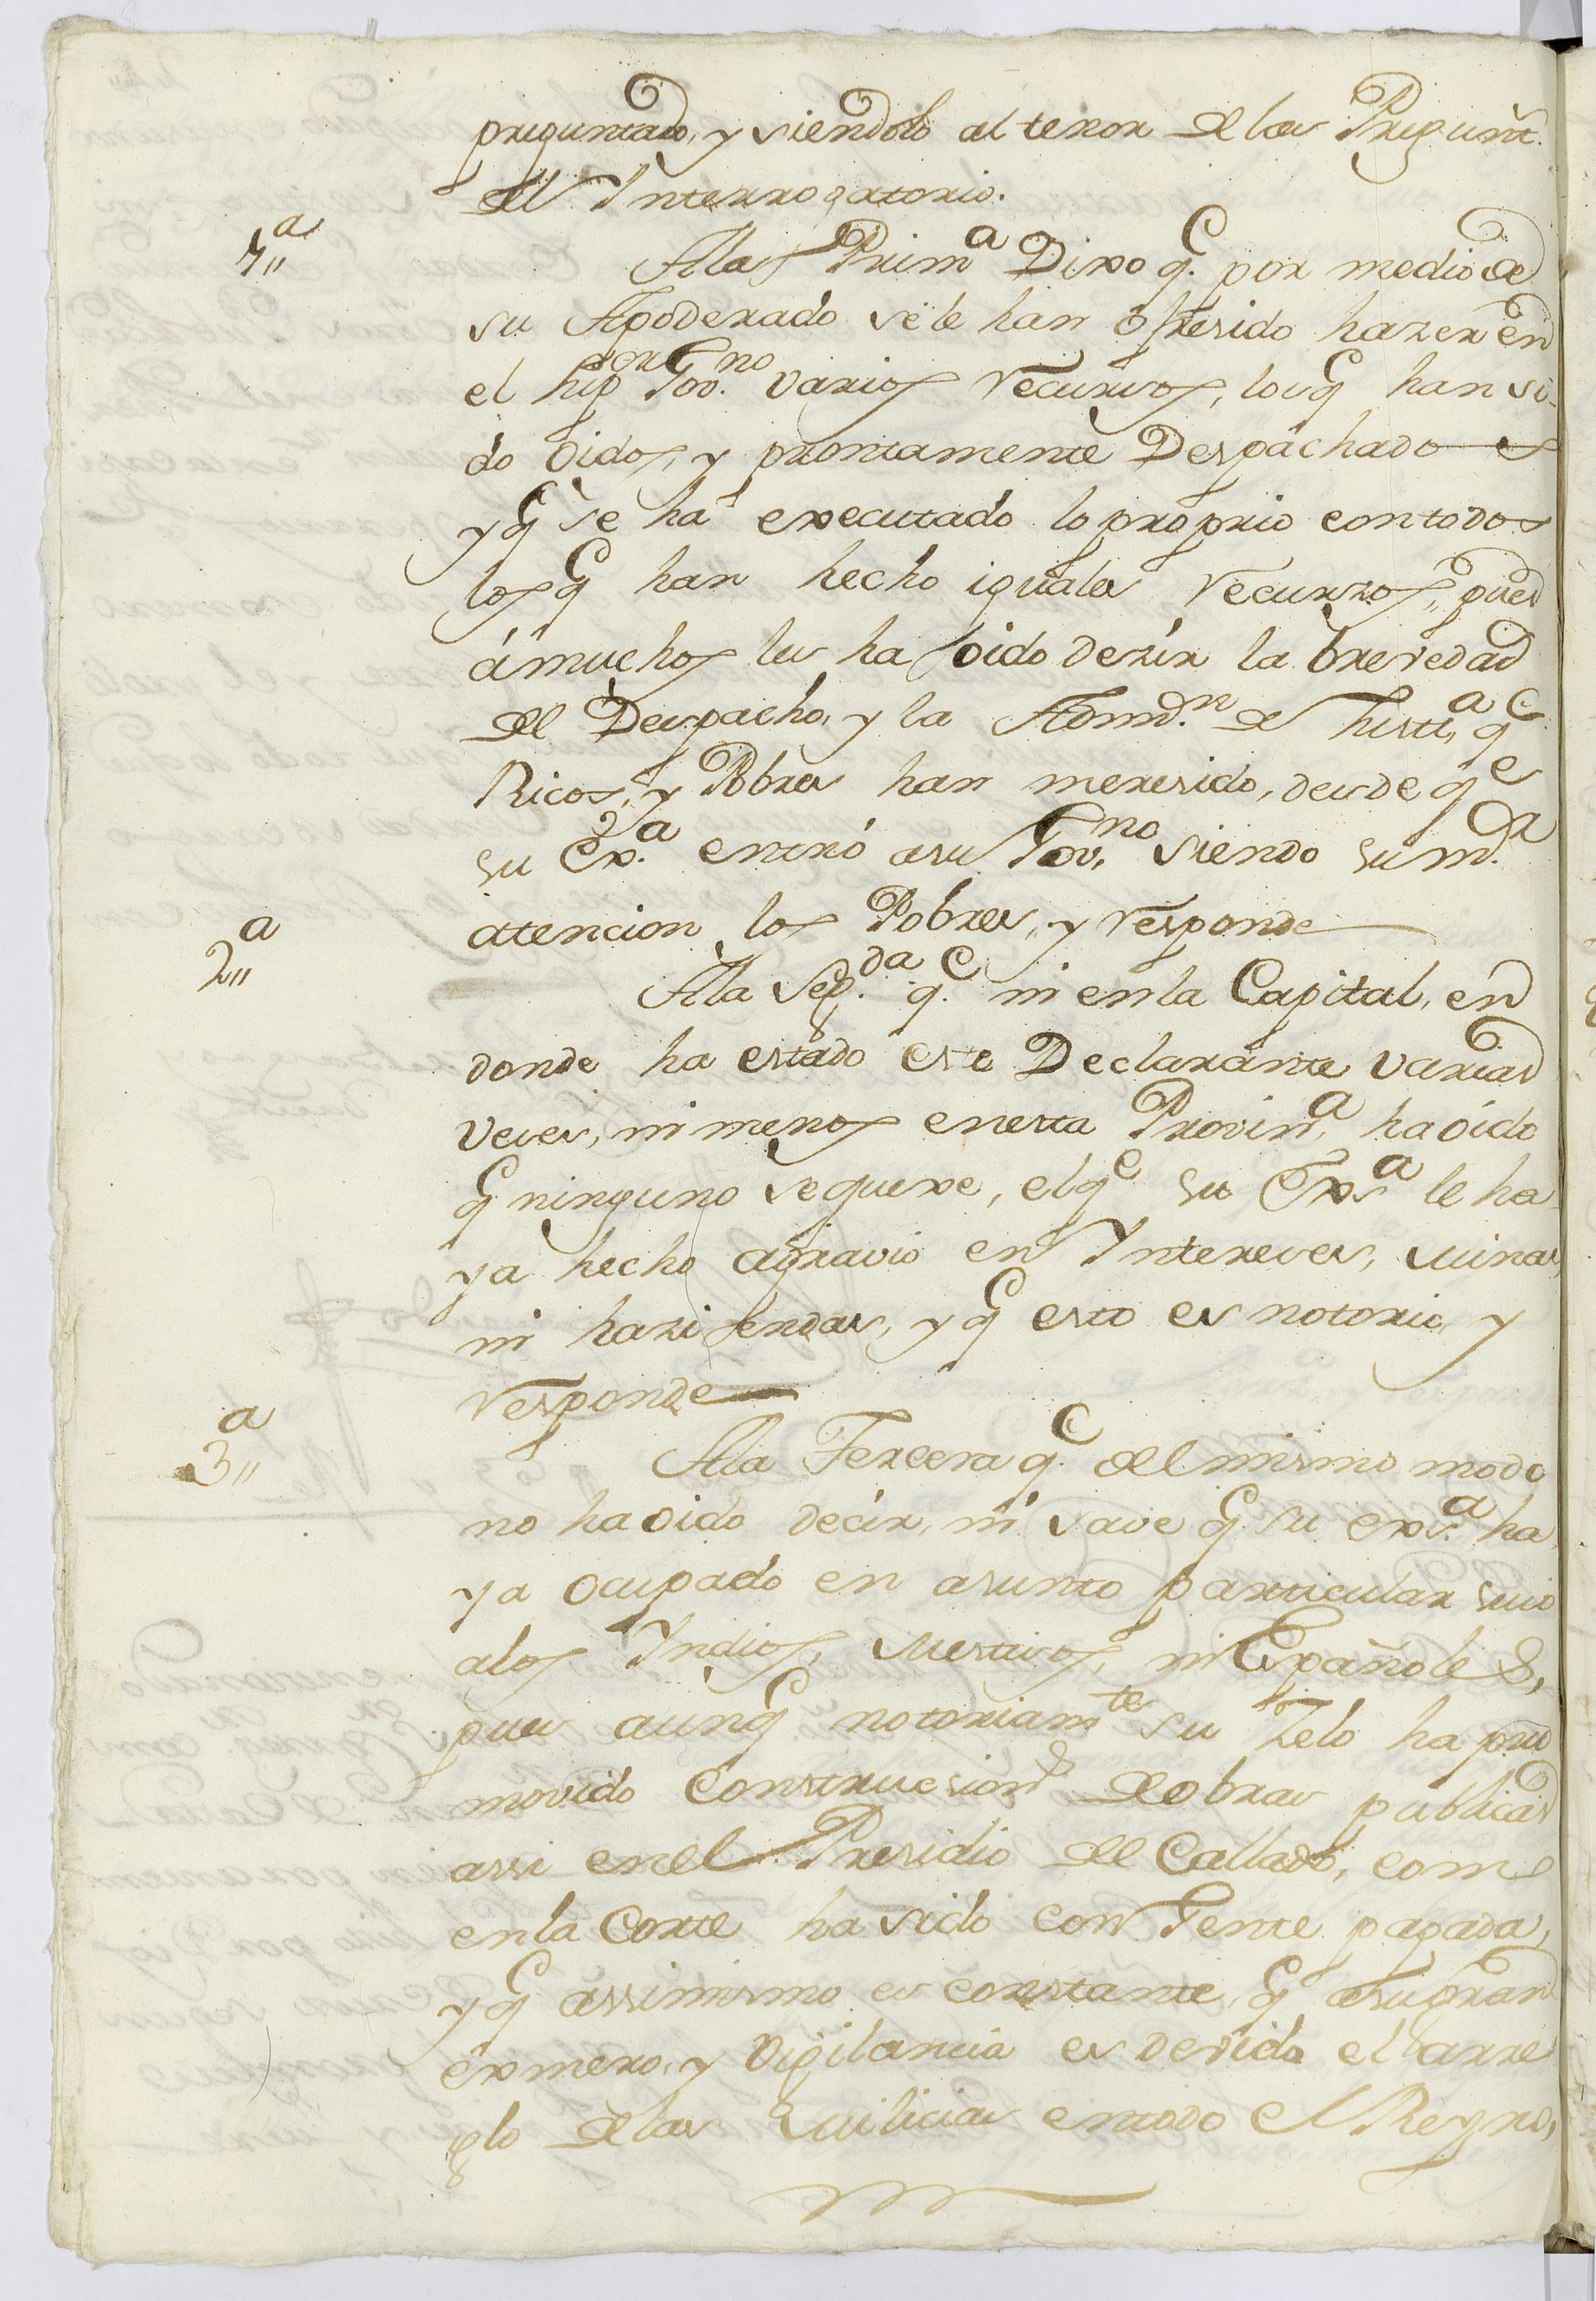 preguntado, y siendolo al tenor de las Pregunt.
del Interrogatorio.
1,,ª
Ala Primª Dixo q.e por medio de
su Apoderado sele han ofresido hazer en
el Sup.or Gov.no varios recursos, los q.e han si-
do oidos, y prontamente Despachados
y q.e se ha executado lo proprio con todos
los q.e han hecho iguales recurzos, pues
á muchos les ha oido dezir la brevedad
del Despacho, y la Admi.n de Justi.a q.e
Ricos, y Pobres han meresido, desde q.e
su Ex.a entró asu Gov.no siendo su m.a
atencion los Pobres, y responde
2,,ª
Ala Seg.da q.e ni enla Capital, en
donde ha estado este Declarante varias
veses, ni menos enesta Provin.a ha oido
q.e ninguno se quexe, el q.e su Exs.a le ha
ya hecho agravio en Intereses, minas,
ni haziendas, y q.e esto es notorio, y
responde
3,,ª
Ala Tercera q.e del mismo modo
no ha oido decir, ni save q.e su exs.a ha
ya ocupado en asunto particular suio
alos Indios, Mestisos, ni Españoles,
pues aunq.e notoriam.te su Zelo ha pro
movido construcsion.s de obras publicas
assi enel Presidio del Callado, como
enla Corte ha sido con Gente pagada,
y q.e assimismo es constante, q.e asu gran
exmero, y vigilancia es devido el arre
glo delas Milicias entodo el Reyno,